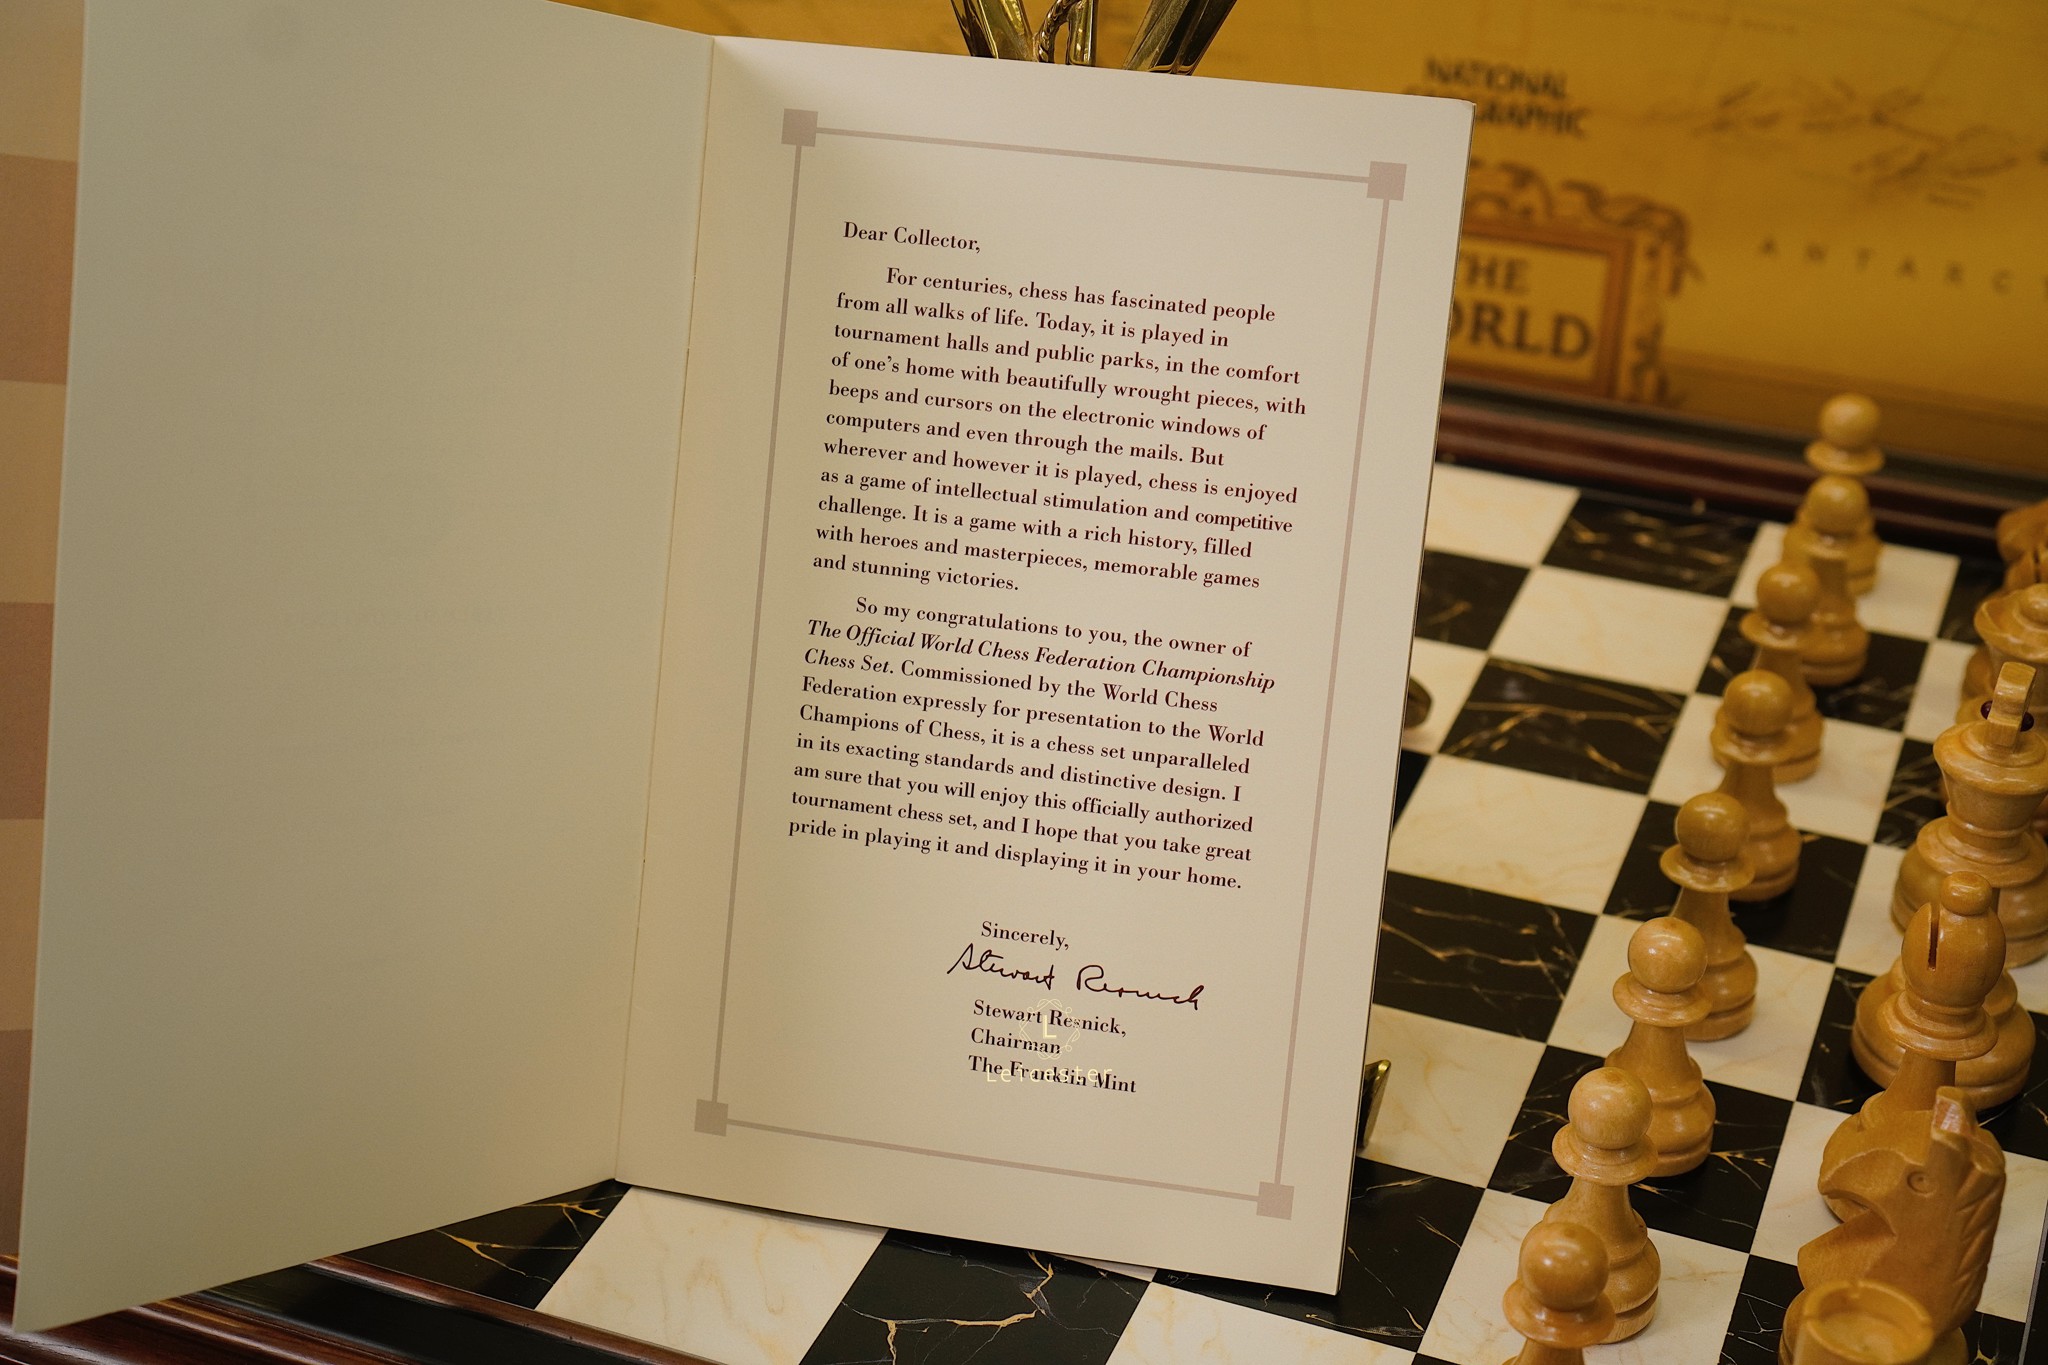 NATIONAL
THE
Dear Collector,
For centuries, chess has fascinated people
from all walks of life. Today, it is played in
tournament halls and public parks, in the comfort
of one's home with beautifully wrought pieces, with
beeps and cursors on the electronic windows of
computers and even through the mails. But
wherever and however it is played, chess is enjoyed
as a game of intellectual stimulation and competitive
challenge. It is a game with a rich history, filled
with heroes and masterpieces, memorable games
and stunning victories.
So my congratulations to you, the owner of
The Official World Chess Federation Championship
Chess Set. Commissioned by the World Chess
Federation expressly for presentation to the World
Champions of Chess, it is a chess set unparalleled
in its exacting standards and distinctive design. I
am sure that you will enjoy this officially authorized
tournament chess set, and I hope that you take great
pride in playing it and displaying it in your home.
Sincerely,
Stewart Resnick
Stewart Resnick,
Chairman
The Franklin Mint
L
Leicester